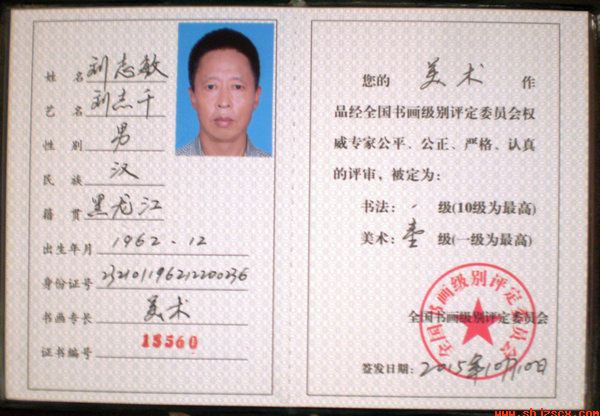 姓名 刘志敏
艺名 刘杰千
性别 男
民族 汉
籍贯 黑龙江
出生年月 1962.12
身份证号 232101196212200236
书画专长 美术
证书编号 13560
您的 美术 作
品经全国书画级别评定委员会权
威专家公平、公正、严格、认真
的评审，被定为：
书法： 级(10级为最高)
美术：壹 级(一级为最高)
全国书画级别评定委员会
全国书画级别评定委员会
签发日期：2015年10月10日